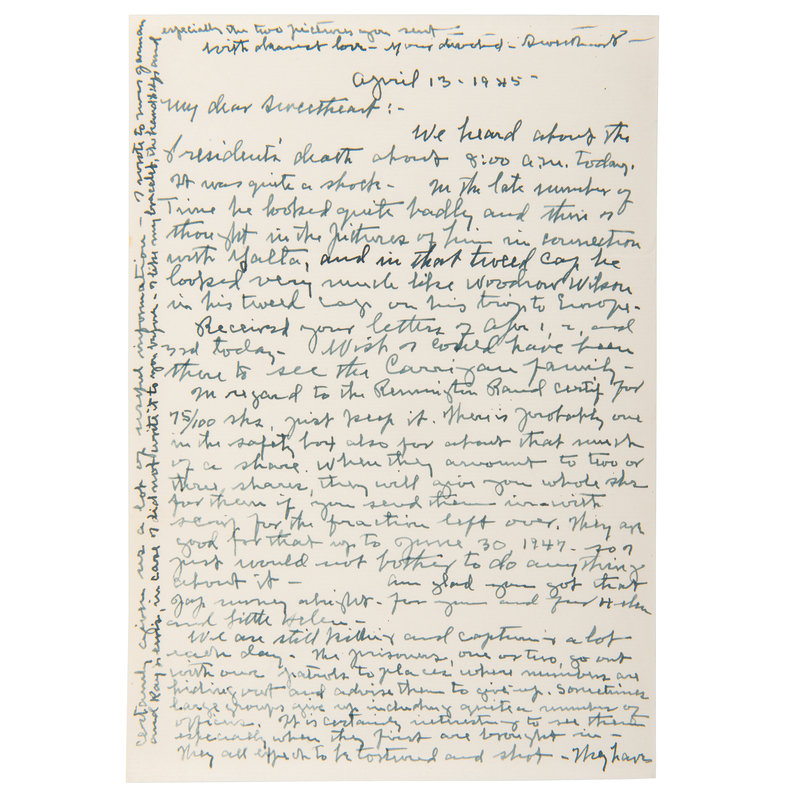 especially the two pictures you sent —
With dearest love — Your devoted — Sweetheart —
April 13 - 1945 -
My dear Sweetheart :-
We heard about the
President's death about 8:00 a.m. today.
It was quite a shock - In the late number of
Time he looked quite badly and thin I
thought in the pictures of him in connection
with Yalta, and in that tweed cap he
looked very much like Woodrow Wilson
in his tweed cap on his trip to Europe -
Received your letters of Apr 1, 2, and
3rd today - Wish I could have been
there to see the Carrigan family -
In regard to the Remington Rand certif for
75/100 shs, just keep it. There is probably one
in the safety box also for about that much
of a share. When they amount to two or
three shares, they will give you whole shs
for them if you send them in - with
scrip for the fraction left over. They are
good for that up to June 30 1947 - so I
just would not bother to do anything
about it - Am glad you got that
Jap money alright - for you and
and little Helen -
We are still killing and capturing a lot
each day - The prisoners, one or two, go out
with our patrols to places where numbers are
hiding out and advise them to give up. Sometimes
large groups give up including quite a number of
officers. It is certainly interesting to see them
especially when they first are brought in -
They all expect to be tortured and shot - They have
certainly given us a lot of useful information - I wrote to
and Kay's ends, in case I did not write it to you before - I like my bracelet, the and